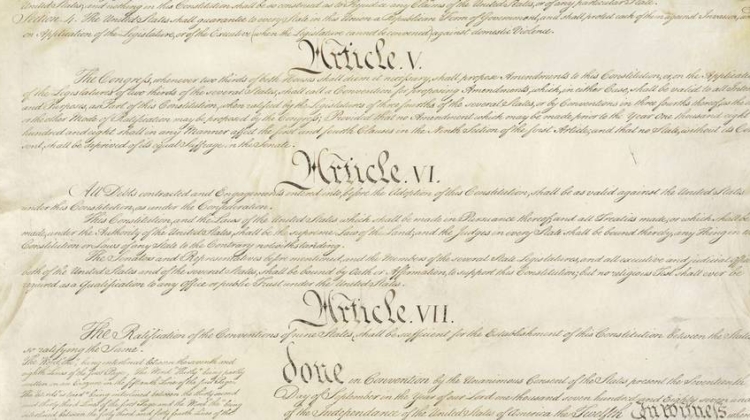 United States, and nothing in this Constitution shall be so construed as to Prejudice any Claims of the United States, or of any particular State.
Section. 4. The United States shall guarantee to every State in this Union a Republican Form of Government, and shall protect each of them against Invasion; and
on Application of the Legislature, or of the Executive (when the Legislature cannot be convened) against domestic Violence.
Article. V.
The Congress, whenever two thirds of both Houses shall deem it necessary, shall propose Amendments to this Constitution, or, on the Application
of the Legislatures of two thirds of the several States, shall call a Convention for proposing Amendments, which, in either Case, shall be valid to all Intents
and Purposes, as Part of this Constitution, when ratified by the Legislatures of three fourths of the several States, or by Conventions in three fourths thereof, as the
other Mode of Ratification may be proposed by the Congress; Provided that no Amendment which may be made prior to the Year One thousand eight
hundred and eight shall in any Manner affect the first and fourth Clauses in the Ninth Section of the first Article; and that no State, without its
shall be deprived of its equal Suffrage in the Senate.
Article. VI.
All Debts contracted and Engagements entered into, before the Adoption of this Constitution, shall be as valid against the United States
under this Constitution, as under the Confederation.
This Constitution, and the Laws of the United States which shall be made in Pursuance thereof; and all Treaties made, or which shall be
made, under the Authority of the United States, shall be the supreme Law of the Land; and the Judges in every State shall be bound thereby, any Thing in the
Constitution or Laws of any State to the Contrary notwithstanding.
The Senators and Representatives before mentioned, and the Members of the several State Legislatures, and all executive and judicial
both of the United States and of the several States, shall be bound by Oath or Affirmation, to support this Constitution; but no religious Test shall ever be
required as a Qualification to any Office or public Trust under the United States.
Article. VII.
The Ratification of the Conventions of nine States, shall be sufficient for the Establishment of this Constitution between the States
so ratifying the Same.
The Word, "the," being interlined between the seventh and
eighth Lines of the first Page, The Word "Thirty" being partly
written on an Erazure in the fifteenth Line of the first Page,
done in Convention by the Unanimous Consent of the States present the Seventeenth
Day of September in the Year of our Lord one thousand seven hundred and Eighty seven and
of the Independance of the United States of America the Twelfth In Witness